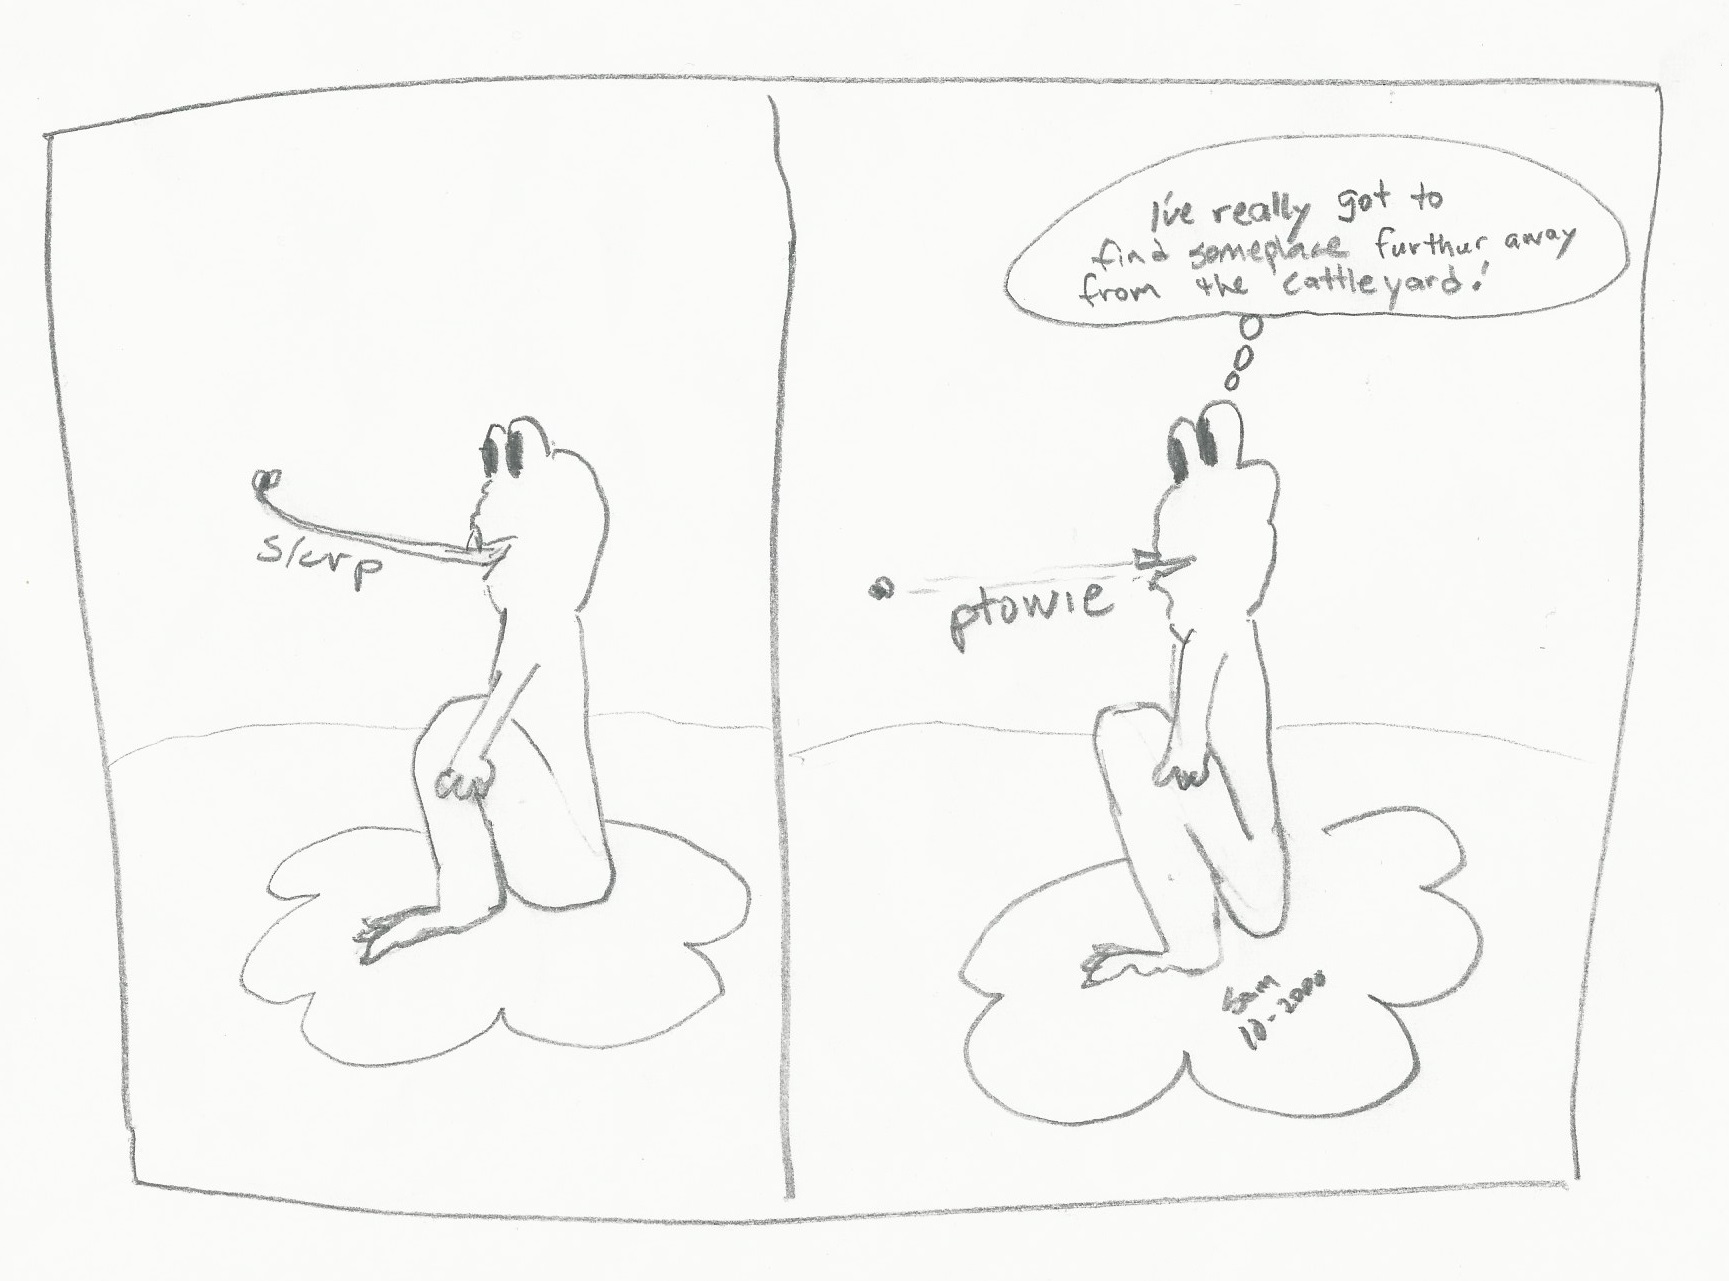 slurp
I've really got to
find someplace furthur away
from the cattleyard!
ptowie
10-2000